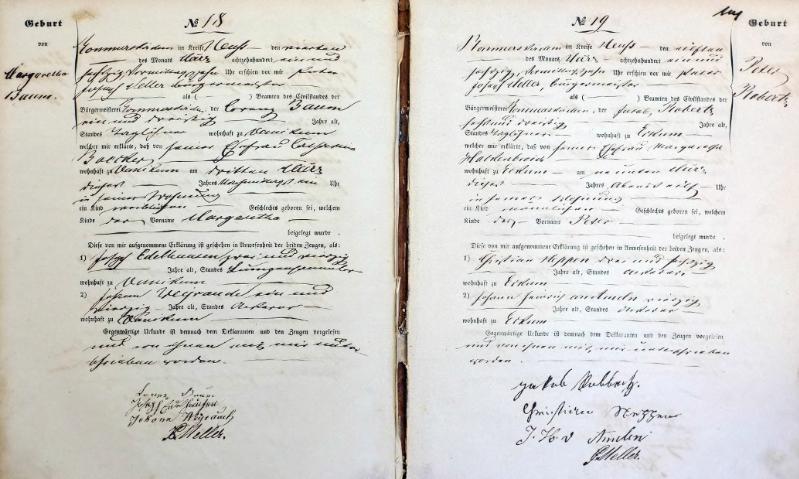 Geburt
von
Margaretha
Baum.
№ 18
Rommerskirchen im Kreise Neuß den vierten
des Monats März achtzehnhundert ein und
sechszig Vormittags zehn Uhr erschien vor mir Peter
Joseph Heller Bürgermeister
als ( ) Beamten des Civilstandes der
Bürgermeisterei Rommerskirchen, der Lorenz Baum
ein und dreißig Jahre alt,
Standes Taglöhner wohnhaft zu Vanikum
welcher mir erklärte, daß von seiner Ehefrau Catharina
wohnhaft zu Vanikum am dritten März
dieses Jahres Uhr
in seiner Wohnung
ein Kind weiblichen Geschlechts geboren sei, welchem
Kinde der Vorname Margaretha
beigelegt wurde.
Diese von mir aufgenommene Erklärung ist geschehen in Anwesenheit der beiden Zeugen, als:
1) Joseph Edelmann zwei und vierzig
Jahre alt, Standes
wohnhaft zu Vanikum
2) Johann ein und
vierzig Jahre alt, Standes Ackerer
wohnhaft zu Vanikum
Gegenwärtige Urkunde ist demnach dem Deklaranten und den Zeugen vorgelesen
und von ihnen und mir unter-
schrieben worden.
Baum
Johann
P. J. Heller.
№ 19
Geburt
von
Peter
Robertz
Rommerskirchen im Kreise Neuß den
des Monats März achtzehnhundert ein und
sechszig Vormittags Uhr erschien vor mir Peter
Joseph Heller, Bürgermeister
als ( ) Beamten des Civilstandes der
Bürgermeisterei Rommerskirchen, der Jacob Robertz
Jahre alt,
Standes Taglöhner wohnhaft zu Eckum
welcher mir erklärte, daß von seiner Ehefrau Margaretha
wohnhaft zu Eckum am neunten März
dieses Jahres Abends Uhr
in seiner Wohnung
ein Kind männlichen Geschlechts geboren sei, welchem
Kinde der Vorname Peter
beigelegt wurde.
Diese von mir aufgenommene Erklärung ist geschehen in Anwesenheit der beiden Zeugen, als:
1) Christian Neppen zwei und sechszig
Jahre alt, Standes Ackerer
wohnhaft zu Eckum
2) Johann vierzig
Jahre alt, Standes Ackerer
wohnhaft zu Eckum
Gegenwärtige Urkunde ist demnach dem Deklaranten und den Zeugen vorgelesen
und von ihnen und mir unterschrieben
worden.
Jakob Robbertz.
Christian Neppen
P. J. Heller.